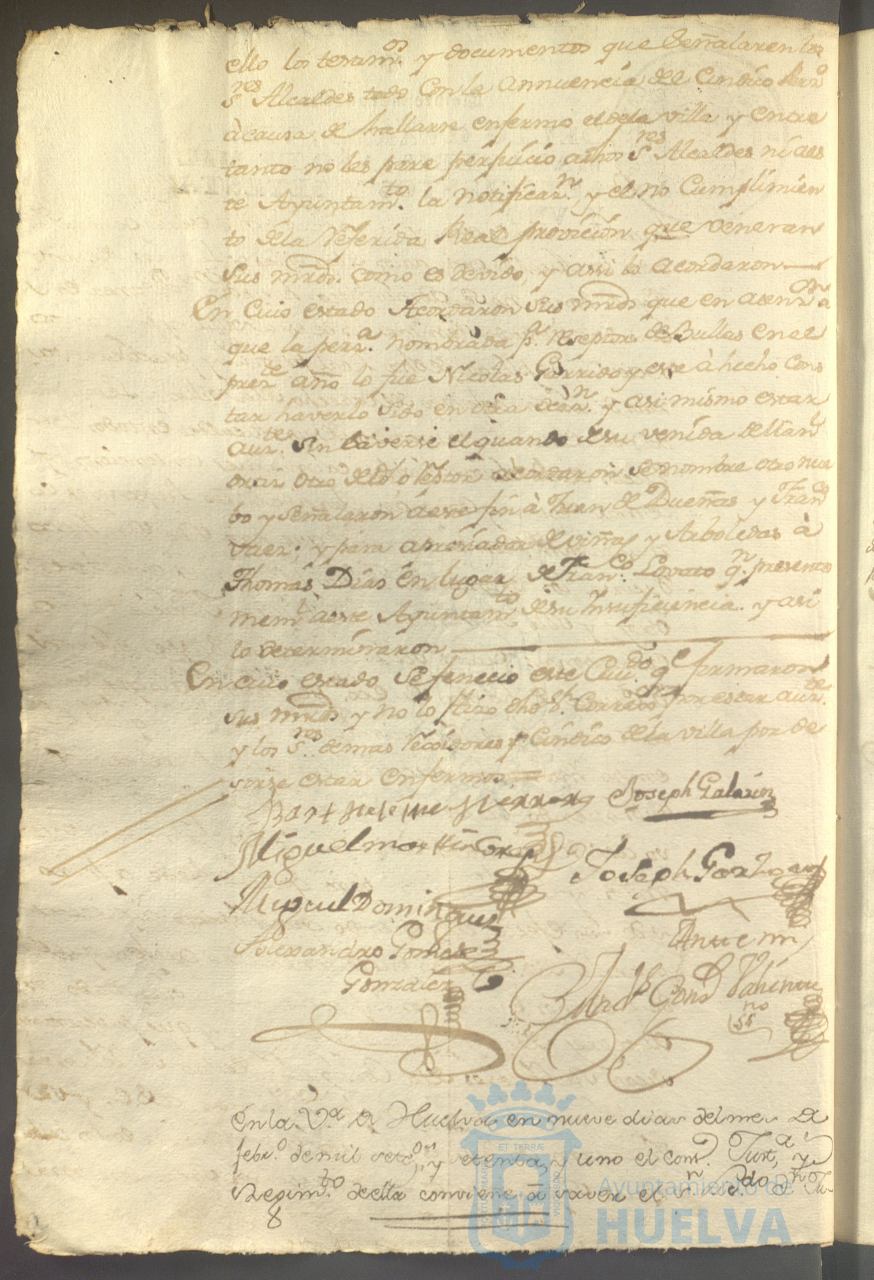 ello los testam.os y documentos que señalaren los
S.res Alcaldes todo con la annuencia del Cindico
à causa de hallarse enfermo el de la villa y entre
tanto no les pare perjuicio a dhos S.res Alcaldes ni a es
te Ayuntam.to la notificaz.n y el no Cumplimien
to de la Referida Real provicion que veneran
sus mrds. como es devido, y assi lo acordaron
En cuio estado Acordaron sus mrds que en atenz.on a
que la pers.a nombrada p.a reseptor de Bullas en el
pres.te año lo fue Nicolas Garrido y este à hecho cons
tar haverlo sido en otra y asi mismo estar
aus.te sin saverse el quando de su venida
otro acordaron se nombre otro nue
bo y señalaron a este fin à Juan de Dueñas y Fran.co
y para apreciador de viñas y Arboledas à
Thomas Dias en lugar de Fran.co Lovato q.n presento
mem.l a este Ayuntam.to de su Insuficiencia. y asi
lo determinaron
En cuio estado se fenecio este Cavi.do q.e firmaron
sus mrds y no lo hizo dho S.r Correg.r por estar aus.te
y los S.res demas Rexidores y Cindico de la villa por de
sirse estar enfermos
Barthelome Herrera Joseph Galarion
Miguel martin Joseph Garz
Miguel Dominguez
Alexandro Gomes Ante mi
Gonzalez
no
En la V.a de Huelva en nueve dias del mes de
febr.o de mil setec.os y setenta y uno el con. Just.a y
Regim.to della conviene a saver el S.r
8
Ayuntamiento de
HUELVA